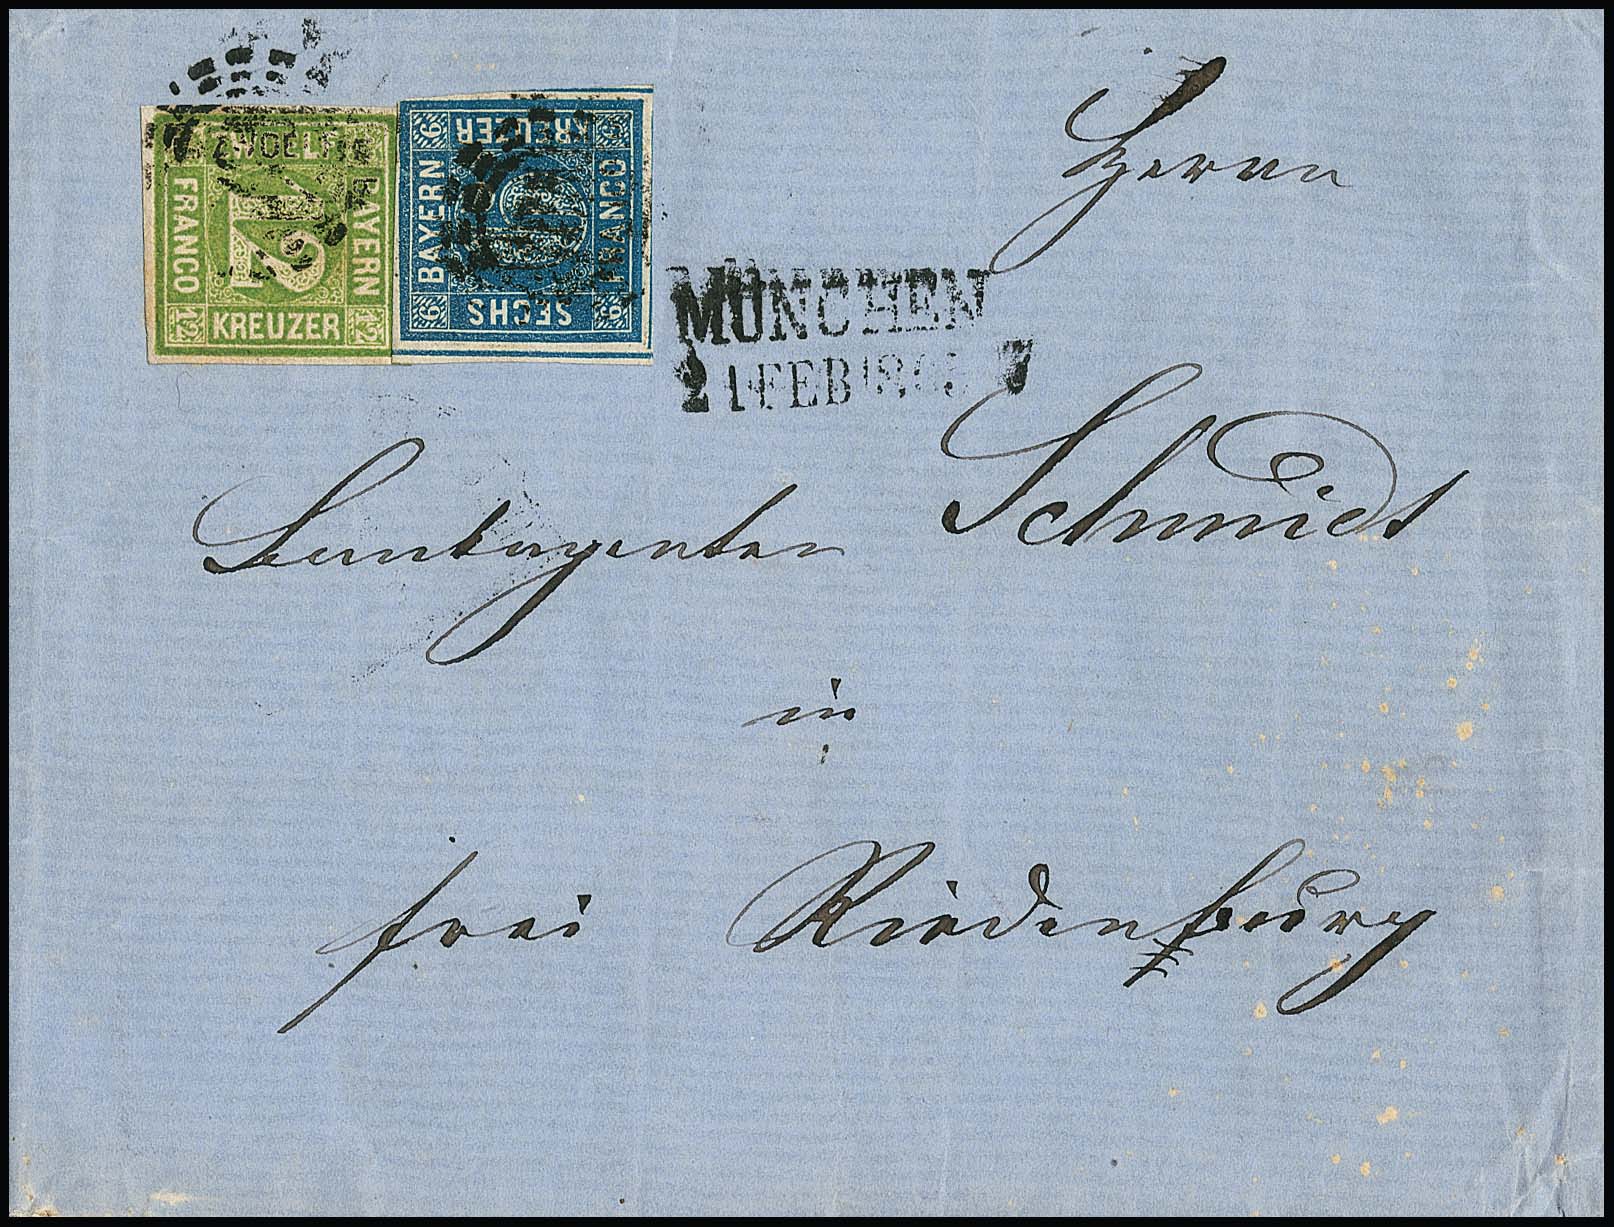 ZWOELF
BAYERN
FRANCO
12
12
12
KREUZER
6
KREUZER
BAYERN
FRANCO
6
SECHS
6
MÜNCHEN
21 FEB
Herrn
Schmidt
in
frei Riedenburg